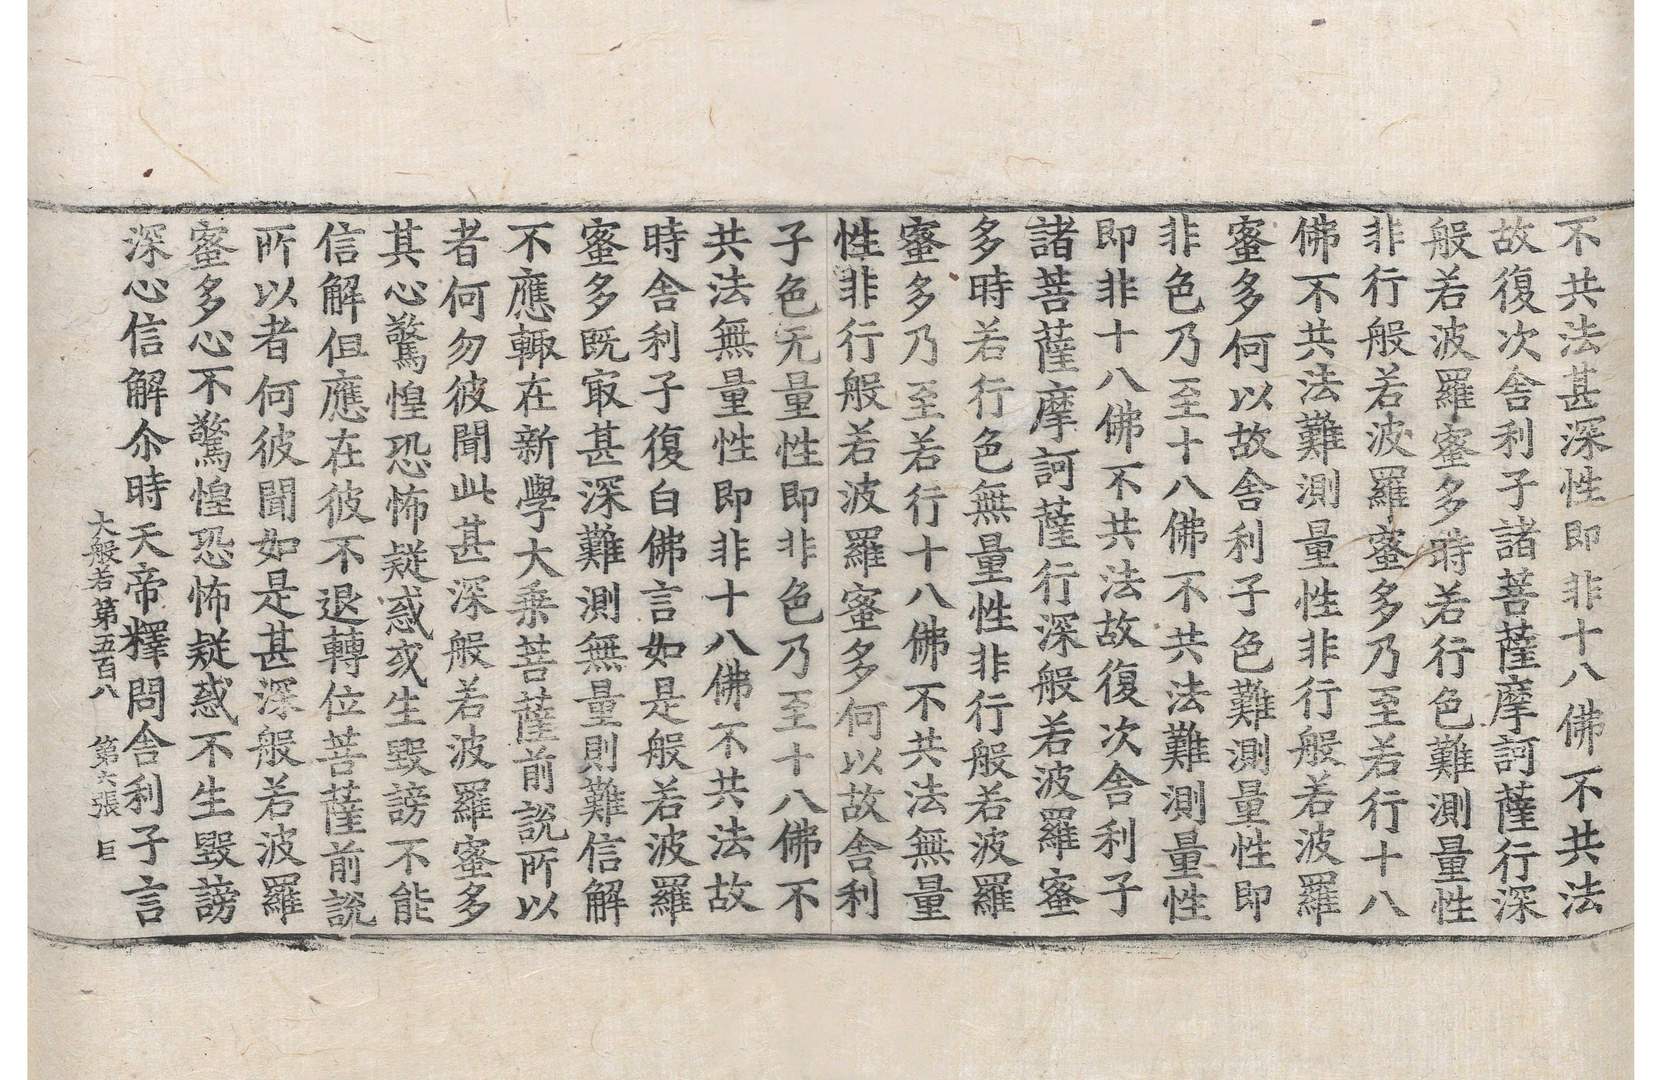 不共法甚深性即非十八佛不共法
故復次舍利子諸菩薩摩訶薩行深
般若波羅蜜多時若行色難測量性
非行般若波羅蜜多乃至若行十八
佛不共法難測量性非行般若波羅
蜜多何以故舍利子色難測量性即
非色乃至十八佛不共法難測量性
即非十八佛不共法故復次舍利子
諸菩薩摩訶薩行深般若波羅蜜
多時若行色無量性非行般若波羅
蜜多乃至若行十八佛不共法無量
性非行般若波羅蜜多何以故舍利
子色无量性即非色乃至十八佛不
共法無量性即非十八佛不共法故
時舍利子復白佛言如是般若波羅
蜜多既㝡甚深難測無量則難信解
不應輙在新學大乗菩薩前說所以
者何勿彼聞此甚深般若波羅蜜多
其心驚惶恐怖疑惑或生毀謗不能
信解但應在彼不退轉位菩薩前説
所以者何彼聞如是甚深般若波羅
蜜多心不驚惶恐怖疑惑不生毀謗
深心信解尒時天帝釋問舍利子言
大般若第五百八 第六張 巨